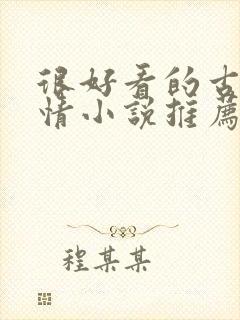 很好看的古
情小説推薦
程某某